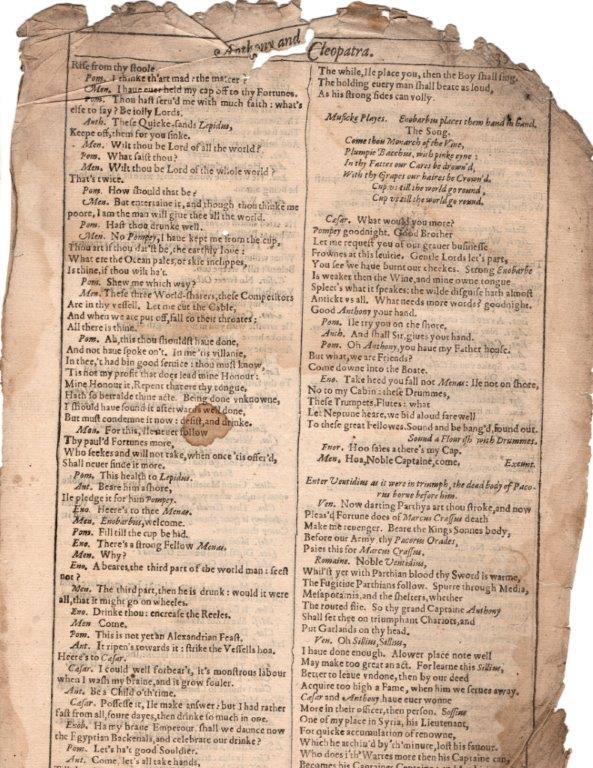 Anthony and Cleopatra.
Rise from thy stoole.
Pom. I thinke th'art mad: the matter?
Men. I haue euer held my cap off to thy Fortunes.
Pom. Thou hast seru'd me with much faith: what's
else to say? Be iolly Lords.
Anth. These Quicke-sands Lepidus,
Keepe off, them for you sinke.
Men. Wilt thou be Lord of all the world?
Pom. What saist thou?
Men. Wilt thou be Lord of the whole world?
That's twice.
Pom. How should that be?
Men. But entertaine it, and though thou thinke me
poore, I am the man will giue thee all the world.
Pom. Hast thou drunke well.
Men. No Pompey, I haue kept me from the cup,
Thou art if thou dar'st be, the earthly Ioue:
What ere the Ocean pales, or skie inclippes,
Is thine, if thou wilt ha't.
Pom. Shew me which way?
Men. These three World-sharers, these Competitors
Are in thy vessell. Let me cut the Cable,
And when we are put off, fall to their throates:
All there is thine.
Pom. Ah, this thou shouldst haue done,
And not haue spoke on't. In me 'tis villanie,
In thee,'t had bin good seruice: thou must know,
'Tis not my profit that does lead mine Honour:
Mine Honour it, Repent that ere thy tongue,
Hath so betraide thine acte. Being done vnknowne,
I should haue found it afterwards well done,
But must condemne it now: desist, and drinke.
Men. For this, Ile neuer follow
Thy paul'd Fortunes more,
Who seekes and will not take, when once 'tis offer'd,
Shall neuer finde it more.
Pom. This health to Lepidus.
Ant. Beare him ashore,
Ile pledge it for him Pompey.
Eno. Heere's to thee Menas.
Men. Enobarbus, welcome.
Pom. Fill till the cup be hid.
Eno. There's a strong Fellow Menas.
Men. Why?
Eno. A beares, the third part of the world man: seest
not?
Men. The third part, then he is drunk: would it were
all, that it might go on wheeles.
Eno. Drinke thou: encrease the Reeles.
Men. Come.
Pom. This is not yet an Alexandrian Feast.
Ant. It ripen's towards it: strike the Vessells hoa.
Heere's to Cæsar.
Cæsar. I could well forbear't, it's monstrous labour
when I wash my braine, and it grow fouler.
Ant. Be a Child o'th'time.
Cæsar. Possesse it, Ile make answer: but I had rather
fast from all, foure dayes, then drinke so much in one.
Enob. Ha my braue Emperour, shall we daunce now
the Egyptian Backenals, and celebrate our drinke?
Pom. Let's ha't good Souldier.
Ant. Come, let's all take hands,
The while, Ile place you, then the Boy shall sing.
The holding euery man shall beate as loud,
As his strong sides can volly.
Musicke Playes. Enobarbus places them hand in hand.
The Song.
Come thou Monarch of the Vine,
Plumpie Bacchus, with pinke eyne:
In thy Fattes our Cares be drown'd,
With thy Grapes our haires be Crown'd.
Cup vs till the world go round,
Cup vs till the world go round.
Cæsar. What would you more?
Pompey goodnight. Good Brother
Let me request you of our grauer businesse
Frownes at this leuitie. Gentle Lords let's part,
You see we haue burnt our cheekes. Strong Enobarbe
Is weaker then the Wine, and mine owne tongue
Spleet's what it speakes: the wilde disguise hath almost
Antickt vs all. What needs more words? goodnight.
Good Anthony your hand.
Pom. Ile try you on the shore.
Anth. And shall Sir, giues your hand.
Pom. Oh Anthony, you haue my Father house.
But what, we are Friends?
Come downe into the Boate.
Eno. Take heed you fall not Menas: Ile not on shore,
No to my Cabin: these Drummes,
These Trumpets, Flutes: what
Let Neptune heare, we bid aloud farewell
To these great Fellowes. Sound and be hang'd, sound out.
Sound a Flourish with Drummes.
Enor. Hoo saies a there's my Cap.
Men. Hoa, Noble Captaine, come,
Exeunt.
Enter Ventidius as it were in triumph, the dead body of Paco-
rus borne before him.
Ven. Now darting Parthya art thou stroke, and now
Pleas'd Fortune does of Marcus Crassus death
Make me reuenger. Beare the Kings Sonnes body,
Before our Army thy Pacorus Orades,
Paies this for Marcus Crassus.
Romaine. Noble Ventidius,
Whil'st yet with Parthian blood thy Sword is warme,
The Fugitiue Parthians follow. Spurre through Media,
Mesapotamia, and the shelters, whether
The routed flie. So thy grand Captaine Anthony
Shall set thee on triumphant Chariots, and
Put Garlands on thy head.
Ven. Oh Sillius, Sillius,
I haue done enough. A lower place note well
May make too great an act. For learne this Sillius,
Better to leaue vndone, then by our deed
Acquire too high a Fame, when him we serues away.
Cæsar and Anthony, haue euer wonne
More in their officer, then person. Sossius
One of my place in Syria, his Lieutenant,
For quicke accumulation of renowne,
Which he atchiu'd by th'minute, lost his fauour.
Who does i'th'Warres more then his Captaine can,
Becomes his Captaines Captaine: